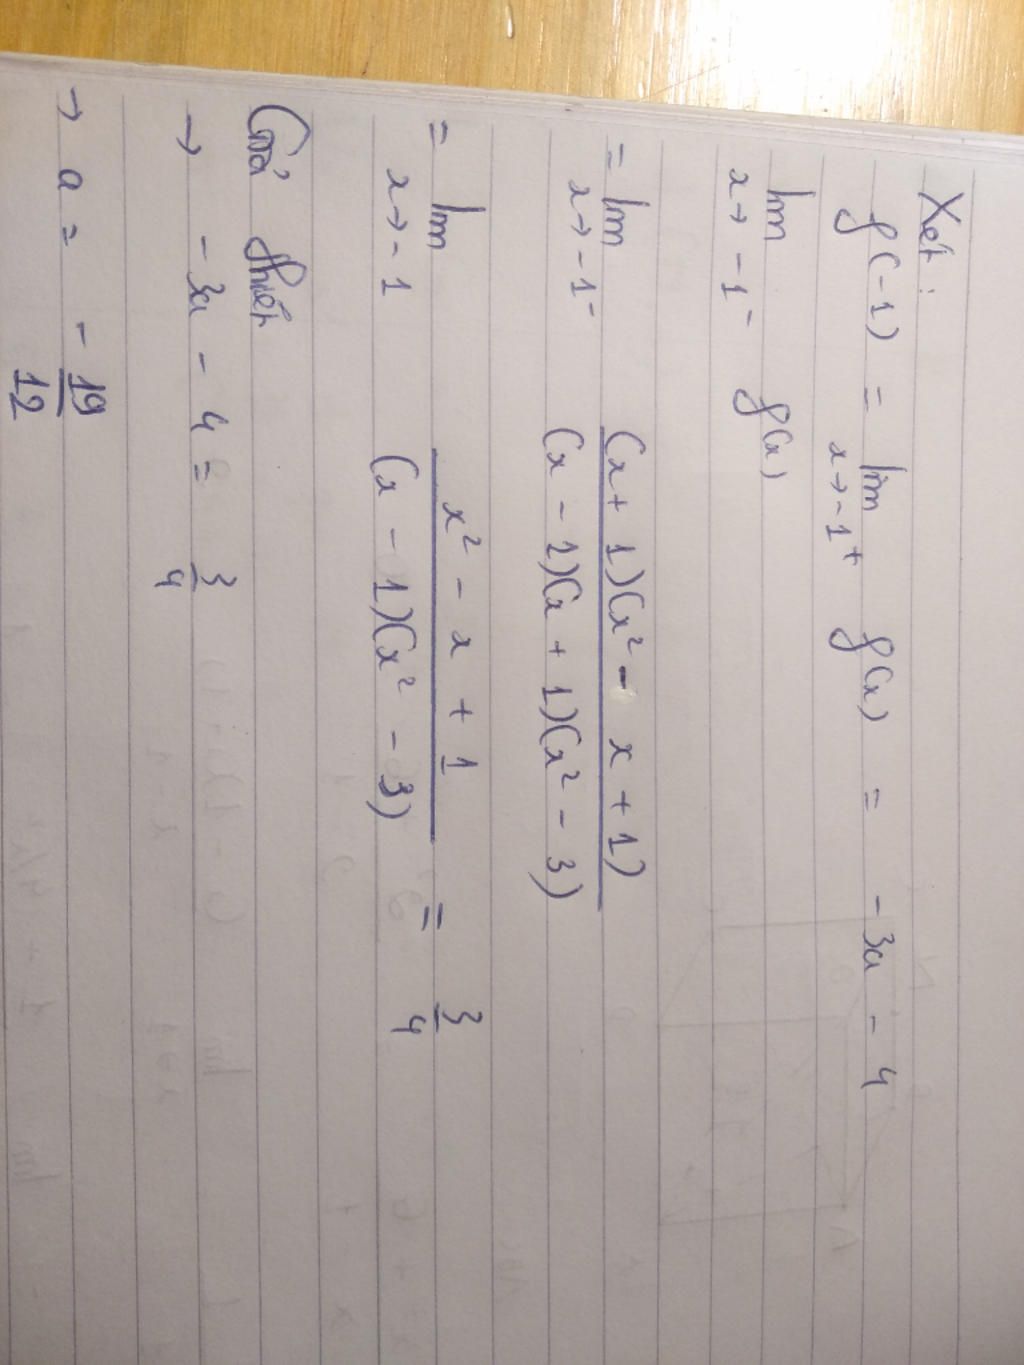 Xét :
f(-1) = lim f(x) = -3a - 4
x→-1⁺
lim f(x)
x→-1⁻
= lim (x+1)(x² - x+1)
x→-1⁻ (x-1)(x+1)(x²-3)
= lim x² - x + 1 = 3
x→-1 (x-1)(x²-3) 4
Giả thiết
→ -3a - 4 = 3
4
→ a = - 19
12